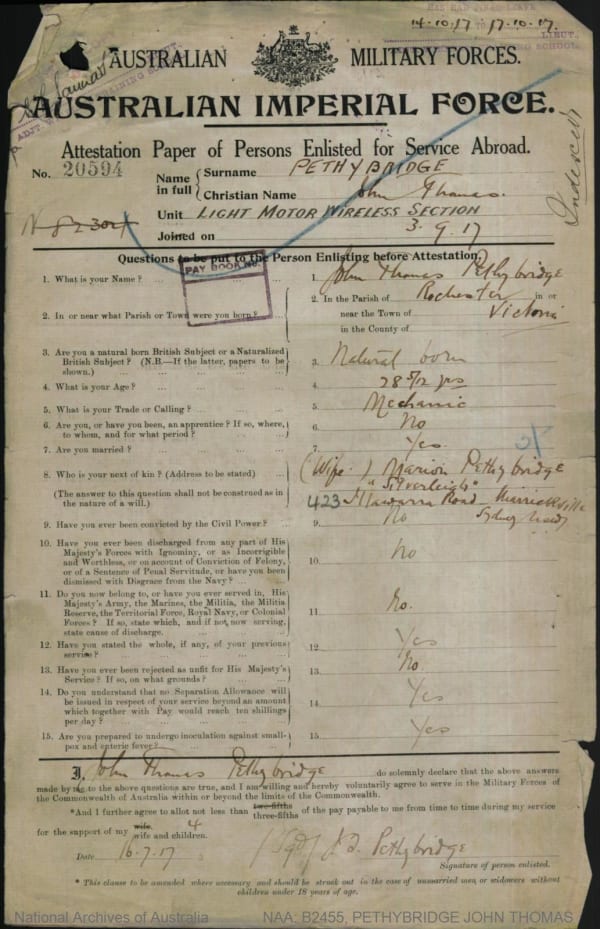 14-10-17 17-10-17.
LIEUT,
SCHOOL
AUSTRALIAN MILITARY FORCES.
AUSTRALIAN IMPERIAL FORCE.
Attestation Paper of Persons Enlisted for Service Abroad.
No. 20594
Name in full { Surname PETHYBRIDGE
Christian Name John Thomas.
Unit LIGHT MOTOR WIRELESS SECTION
Joined on 3.9.17
Questions to be put to the Person Enlisting before Attestation.
PAY BOOK No.
1. What is your Name? ... 1. John Thomas Pethybridge
2. In or near what Parish or Town were you born? ... 2. In the Parish of Rochester in or
near the Town of Victoria
in the County of
3. Are you a natural born British Subject or a Naturalized
British Subject? (N.B.—If the latter, papers to be
shown.) ... 3. Natural born
4. What is your Age? ... 4. 28 5/12 yrs
5. What is your Trade or Calling? ... 5. Mechanic
6. Are you, or have you been, an apprentice? If so, where,
to whom, and for what period? ... 6. No
7. Are you married? ... 7. Yes.
8. Who is your next of kin? (Address to be stated) ... (Wife.) Marion Pethybridge
"Silverleigh"
(The answer to this question shall not be construed as in
the nature of a will.) 423 Illawarra Road Marrickville
Sydney
9. Have you ever been convicted by the Civil Power? ... 9. No
10. Have you ever been discharged from any part of His
Majesty's Forces with Ignominy, or as Incorrigible
and Worthless, or on account of Conviction of Felony,
or of a Sentence of Penal Servitude, or have you been
dismissed with Disgrace from the Navy? ... 10. No
11. Do you now belong to, or have you ever served in, His
Majesty's Army, the Marines, the Militia, the Militia
Reserve, the Territorial Force, Royal Navy, or Colonial
Forces? If so, state which, and if not, now serving,
state cause of discharge. ... 11. No.
12. Have you stated the whole, if any, of your previous
service? ... 12. Yes
13. Have you ever been rejected as unfit for His Majesty's
Service? If so, on what grounds? ... 13. No.
14. Do you understand that no Separation Allowance will
be issued in respect of your service beyond an amount
which together with Pay would reach ten shillings
per day? ... 14. Yes
15. Are you prepared to undergo inoculation against small-
pox and enteric fever? ... 15. Yes
I, John Thomas Pethybridge do solemnly declare that the above answers
made by me to the above questions are true, and I am willing and hereby voluntarily agree to serve in the Military Forces of
the Commonwealth of Australia within or beyond the limits of the Commonwealth.
*And I further agree to allot not less than two-fifths three-fifths of the pay payable to me from time to time during my service
for the support of my wife. wife and children. 4
Date 16.7.17 (Sgd) J. T. Pethybridge
Signature of person enlisted.
* This clause to be amended where necessary and should be struck out in the case of unmarried men or widowers without
children under 18 years of age.
National Archives of Australia NAA: B2455, PETHYBRIDGE JOHN THOMAS